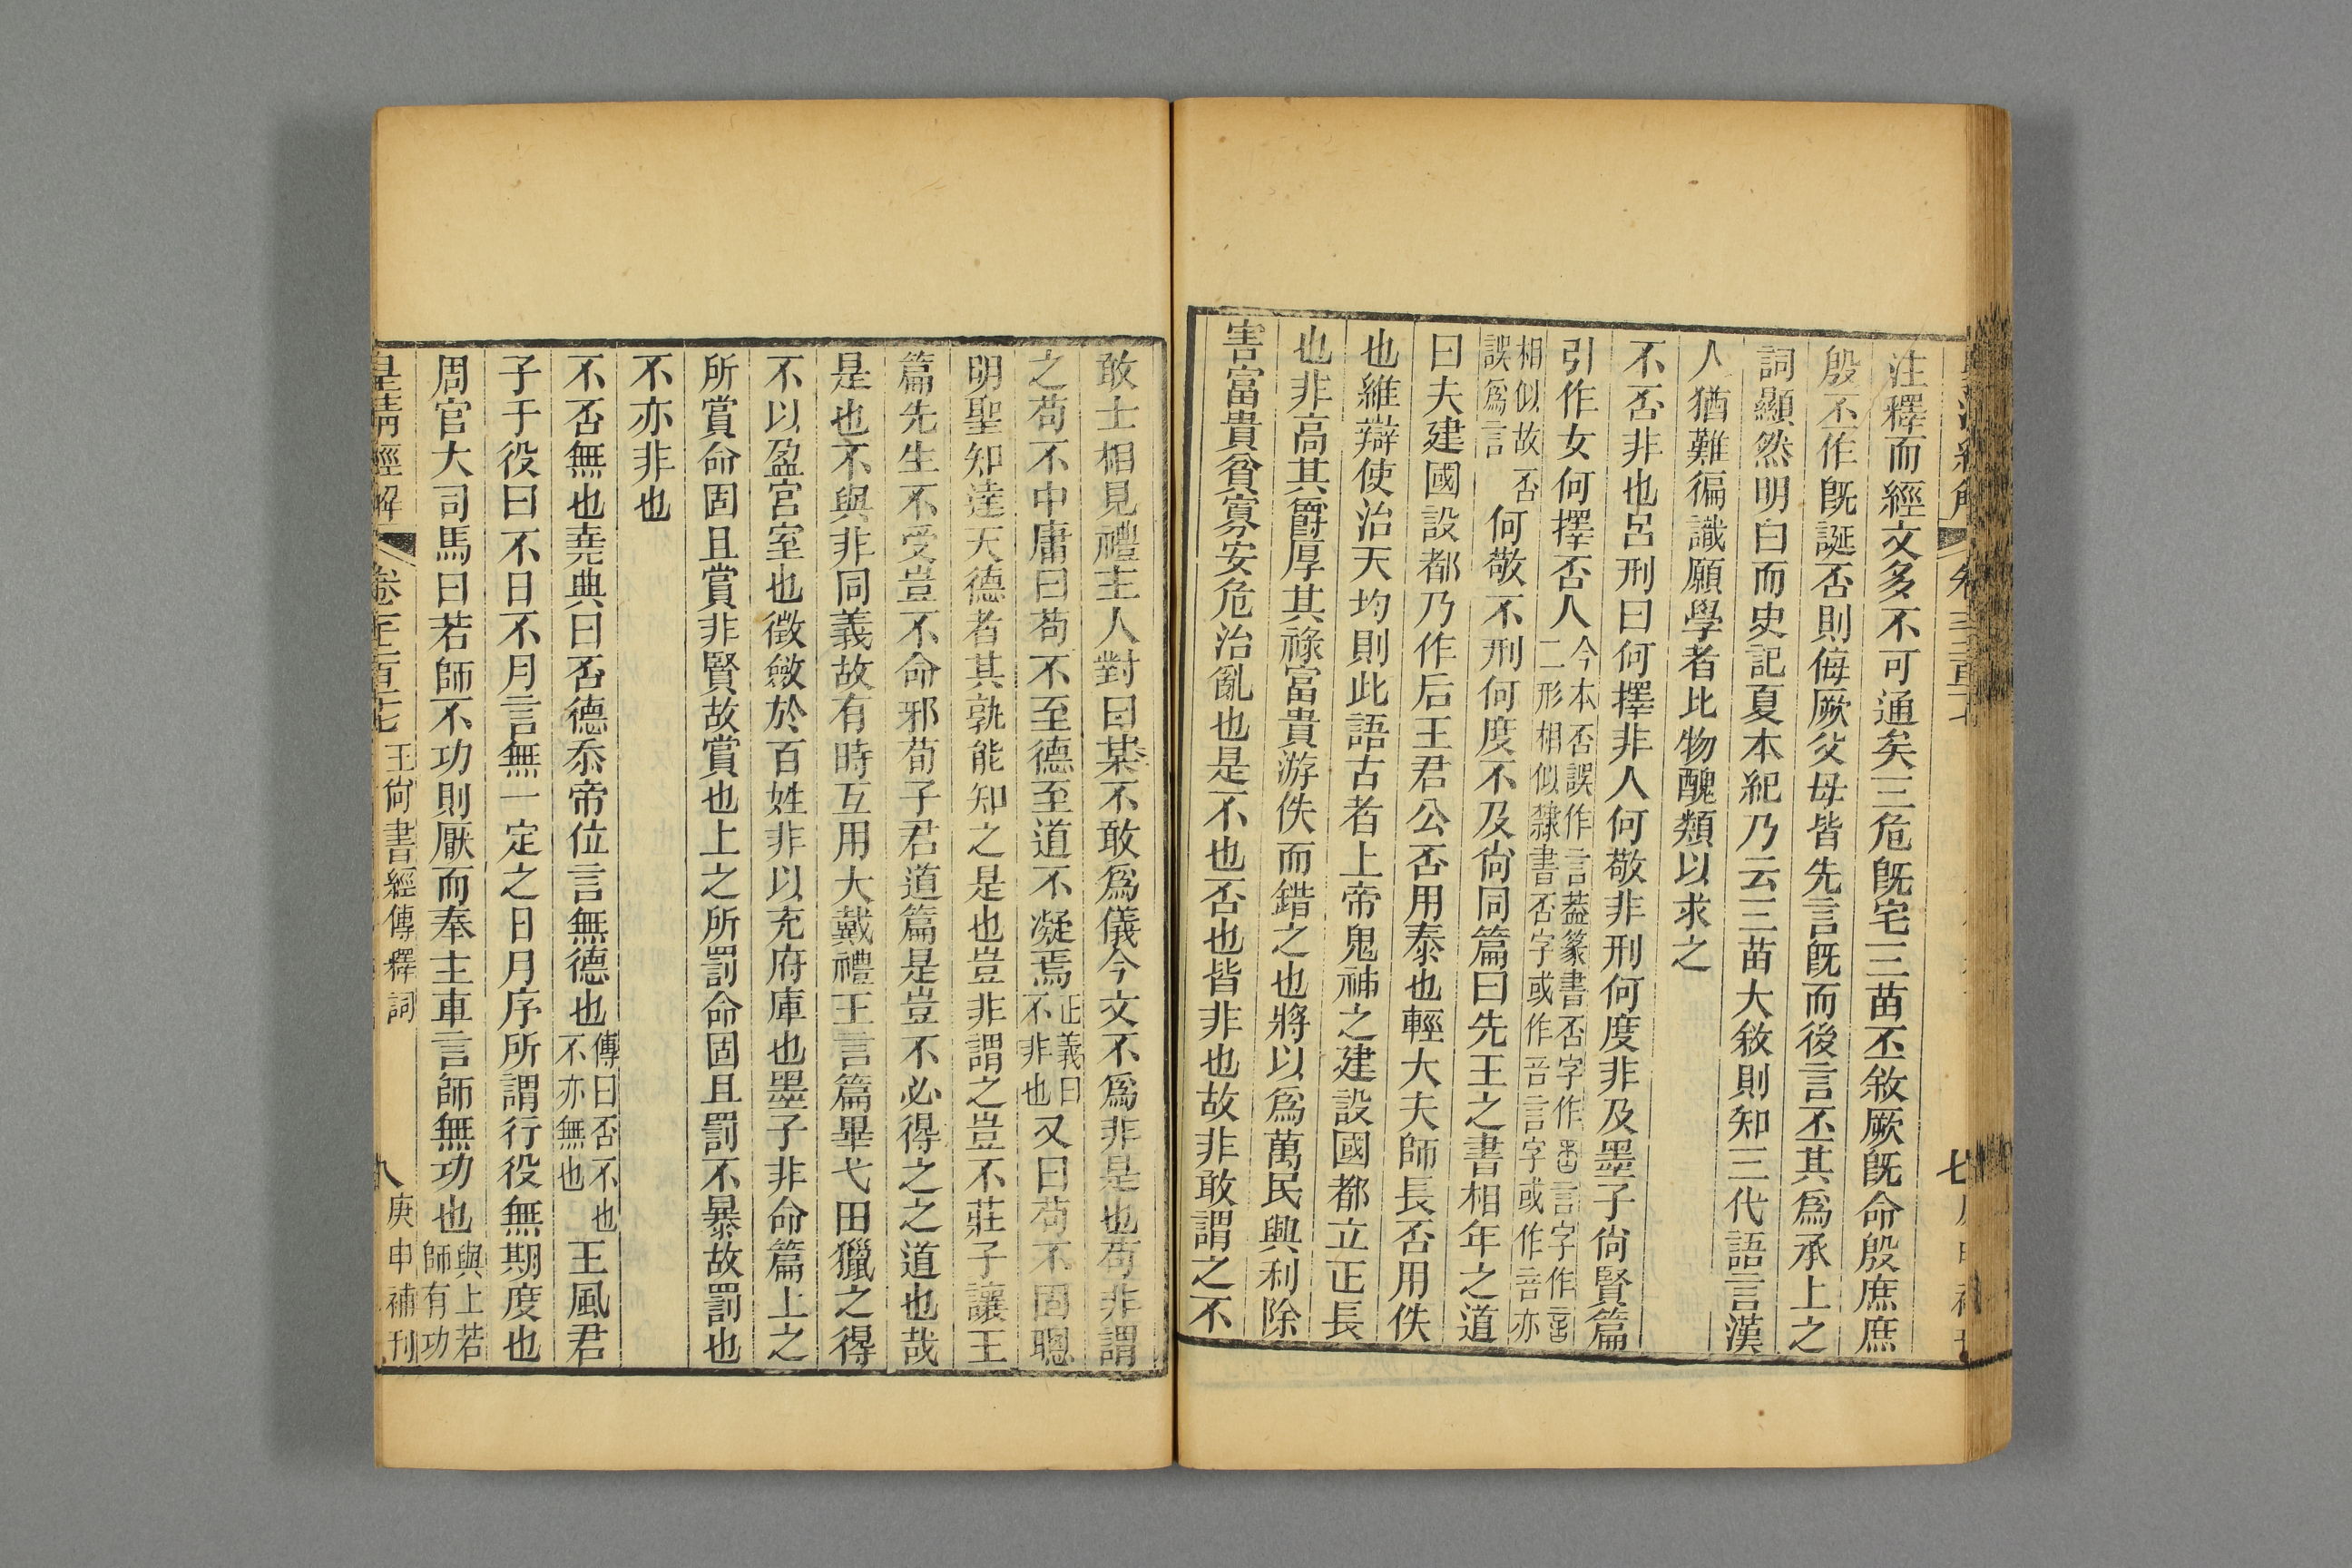 注釋而經文多不可通矣三危旣宅三苗丕敘厥旣命殷庶庶
殷丕作旣誕否則侮厥父母皆先言旣而後言丕其爲承上之
詞顯然明白而史記夏本紀乃云三苗大敘則知三代語言漢
人猶難徧識願學者比物醜類以求之
不否非也呂刑曰何擇非人何敬非刑何度非及墨子尙賢篇
引作女何擇否人今本否誤作言葢篆書否字作言字作二形相似隸書否字或作咅言字或作音亦
相似故否誤爲言何敬不刑何度不及尙同篇曰先王之書相年之道
曰夫建國設都乃作后王君公否用泰也輕大夫師長否用佚
也維辯使治天均則此語古者上帝鬼神之建設國都立正長
也非高其爵厚其祿富貴游佚而錯之也將以爲萬民興利除
害富貴貧寡安危治亂也是不也否也皆非也故非敢謂之不
敢士相見禮主人對曰某不敢爲儀今文不爲非是也苟非謂
之苟不中庸曰苟不至德至道不凝焉正義曰不非也又曰苟不固聰
明聖知達天德者其孰能知之是也豈非謂之豈不莊子讓王
篇先生不受豈不命邪荀子君道篇是豈不必得之之道也哉
是也不與非同義故有時互用大戴禮王言篇畢弋田獵之得
不以盈宮室也徵斂於百姓非以充府庫也墨子非命篇上之
所賞命固且賞非賢故賞也上之所罰命固且罰不暴故罰也
不亦非也
不否無也堯典曰否德忝帝位言無德也傳曰否不也不亦無也王風君
子于役曰不日不月言無一定之日月序所謂行役無期度也
周官大司馬曰若師不功則厭而奉主車言師無功也與上若師有功
皇淸經解 卷一千二百七 王尙書經傳釋詞 八 庚申補刊